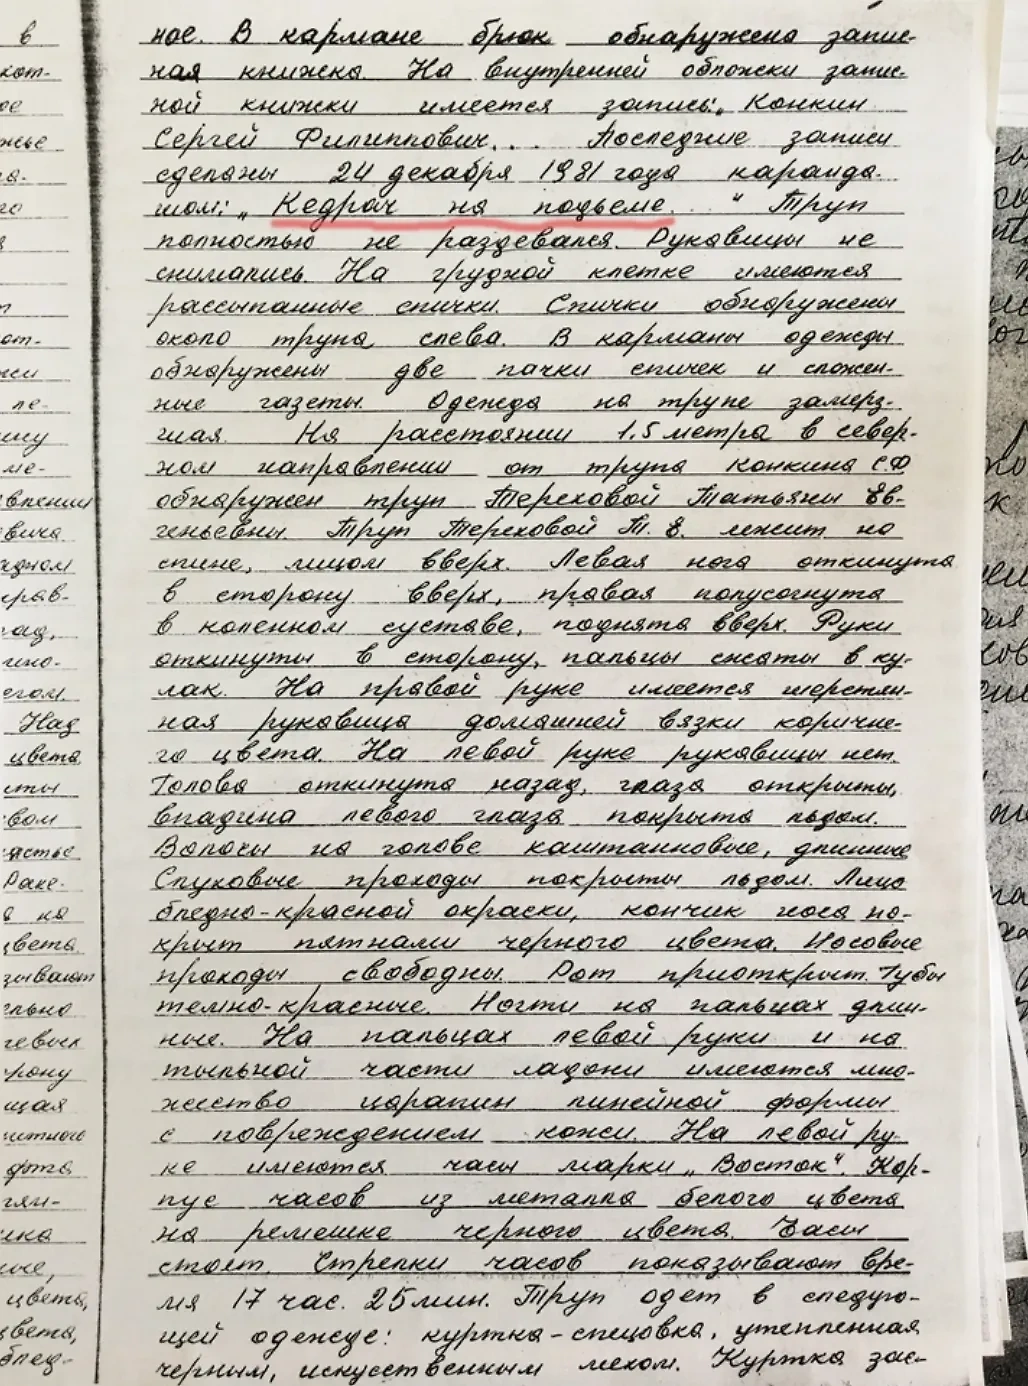 ное. В кармане брюк обнаружена запис-
ная книжка. На внутренней обложки запис-
ной книжки имеется запись: „Конкин
Сергей Филиппович... Последние записи
сделаны 24 декабря 1981 года каранда-
шом: „Кедрач на подъеме..." Труп
полностью не раздевался. Рукавицы не
снимались. На грудной клетке имеются
рассыпанные спички. Спички обнаружены
около трупа слева. В карманы одежды
обнаружены две пачки спичек и сложен-
ные газеты. Одежда на трупе замерз-
шая. На расстоянии 1.5 метра в север-
ном направлении от трупа Конкина С.Ф
обнаружен труп Тереховой Татьяны Ев-
геньевны. Труп Тереховой Т. Е. лежит на
спине, лицом вверх. Левая нога откинута
в сторону вверх, правая полусогнута
в коленном суставе, поднята вверх. Руки
откинуты в сторону, пальцы сжаты в ку-
лак. На правой руке имеется шерстян-
ная рукавица домашней вязки коричне-
го цвета. На левой руке рукавицы нет.
Голова откинута назад, глаза открыты,
впадина левого глаза покрыта льдом.
Волосы на голове каштановые, длинные
Слуховые проходы покрыты льдом. Лицо
бледно-красной окраски, кончик носа по-
крыт пятнами черного цвета. Носовые
проходы свободны. Рот приоткрыт. Губы
темно-красные. Ногти на пальцах длин-
ные. На пальцах левой руки и на
тыльной части ладони имеются мно-
жество царапин линейной формы
с повреждением кожи. На левой ру-
ке имеются часы марки „Восток". Кор-
пус часов из металла белого цвета
на ремешке черного цвета. Часы
стоят. Стрелки часов показывают вре-
мя 17 час. 25 мин. Труп одет в следую-
щей одежде: куртка-спецовка, утепленная
черным, искусственным мехом. Куртка зас-